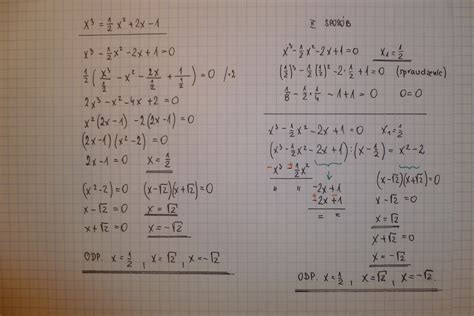 x³ = 1/2 x² + 2x - 1
x³ - 1/2 x² - 2x + 1 = 0
1/2 ( x³/(1/2) - x² - 2x/(1/2) + 1/(1/2) ) = 0 /·2
2x³ - x² - 4x + 2 = 0
x² (2x-1) - 2 (2x-1) = 0
(2x-1) (x²-2) = 0
2x-1 = 0 x = 1/2
(x²-2) = 0 (x-√2)(x+√2) = 0
x-√2 = 0 x = √2
x+√2 = 0 x = -√2
ODP. x = 1/2 , x = √2 , x = -√2
II SPOSÓB
x³ - 1/2 x² - 2x + 1 = 0 x₁ = 1/2
(1/2)³ - 1/2 (1/2)² - 2·1/2 + 1 = 0 (sprawdzenie)
1/8 - 1/2 · 1/4 - 1 + 1 = 0 0 = 0
x³ - 1/2 x² - 2x + 1 = 0 x₁ = 1/2
(x³ - 1/2 x² - 2x + 1) : (x - 1/2) = x² - 2
-x³ ± 1/2 x²
" "
-2x + 1
± 2x ± 1
= =
(x-√2)(x+√2) = 0
x-√2 = 0
x = √2
x+√2 = 0
x = -√2
ODP. x = 1/2 , x = √2 , x = -√2.